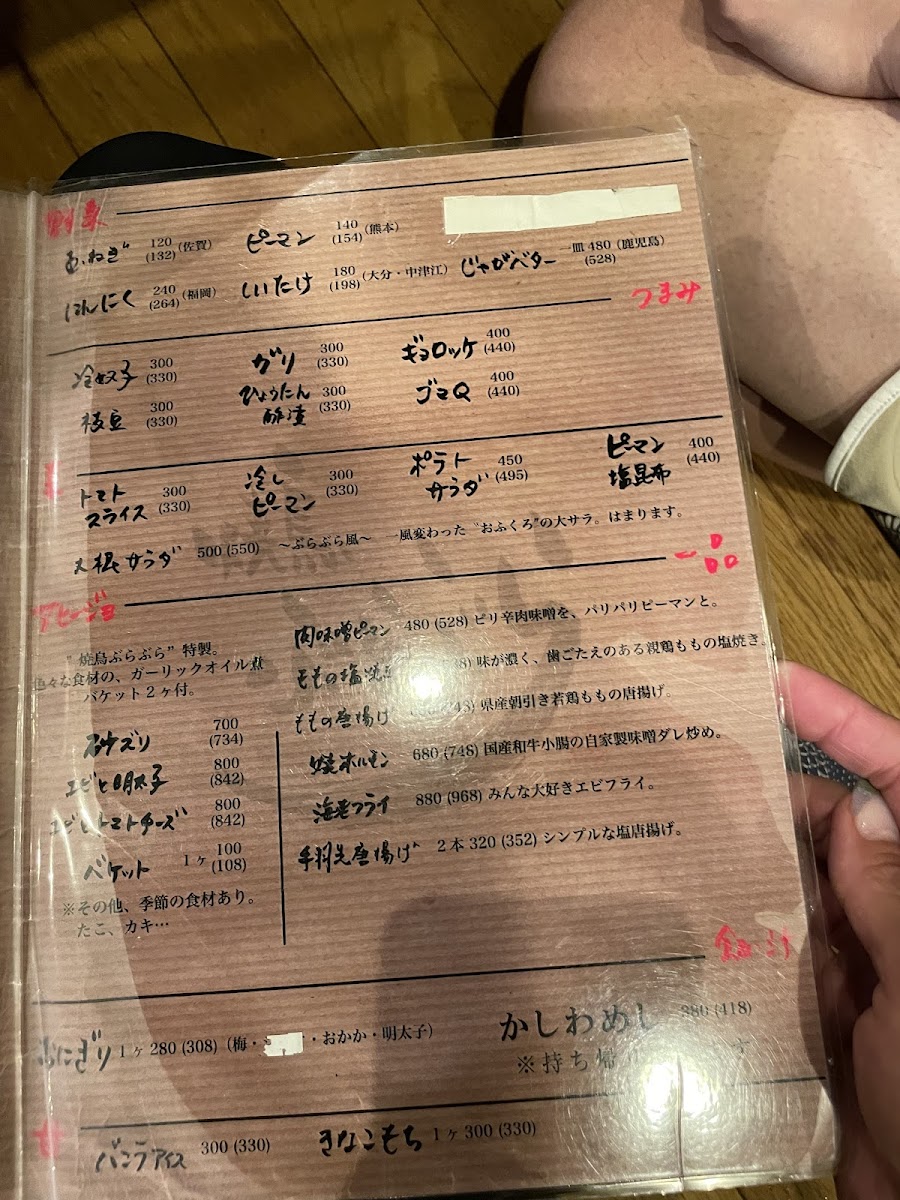 野菜
玉ねぎ 120 (132) (佐賀) ピーマン 140 (154) (熊本)
にんにく 240 (264) (福岡) しいたけ 180 (198) (大分・中津江) じゃがベター 一皿 480 (528) (鹿児島)
つまみ
冷奴子 300 (330) ガリ 300 (330) ギョロッケ 400 (440)
枝豆 300 (330) ひょうたん酢漬 300 (330) ゴマQ 400 (440)
トマトスライス 300 (330) 冷しピーマン 300 (330) ポテトサラダ 450 (495) ピーマン塩昆布 400 (440)
大根サラダ 500 (550) 〜ぶらぶら風〜 一風変わった“おふくろ”の大サラ。はまります。
一品
アヒージョ
“焼鳥ぶらぶら”特製。
色々な食材の、ガーリックオイル煮
バケット2ヶ付。
砂ズリ 700 (734)
エビと明太子 800 (842)
エビとトマトチーズ 800 (842)
バケット 1ヶ 100 (108)
※その他、季節の食材あり。
たこ、カキ…
肉味噌ピーマン 480 (528) ピリ辛肉味噌を、パリパリピーマンと。
ももの塩焼き 味が濃く、歯ごたえのある親鶏ももの塩焼き。
ももの唐揚げ 県産朝引き若鶏ももの唐揚げ。
焼ホルモン 680 (748) 国産和牛小腸の自家製味噌ダレ炒め。
海老フライ 880 (968) みんな大好きエビフライ。
手羽先唐揚げ 2本 320 (352) シンプルな塩唐揚げ。
おにぎり 1ヶ 280 (308) (梅・ ・おかか・明太子) かしわめし 380 (418)
※持ち帰り
甘
バニラアイス 300 (330) きなこもち 1ヶ 300 (330)